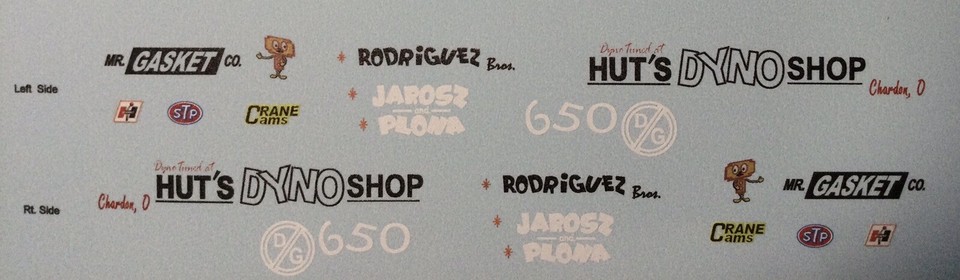 MR. GASKET CO.
RODRIGUEZ Bros.
Dyno Tuned at
HUT'S DYNO SHOP
Chardon, O
Left Side
H
STP
CRANE
Cams
JAROSZ
and
PLONA
650 D/G
Dyno Tuned at
HUT'S DYNO SHOP
Chardon, O
Rt. Side
D/G 650
RODRIGUEZ Bros.
JAROSZ
and
PLONA
MR. GASKET CO.
CRANE
Cams
STP
H